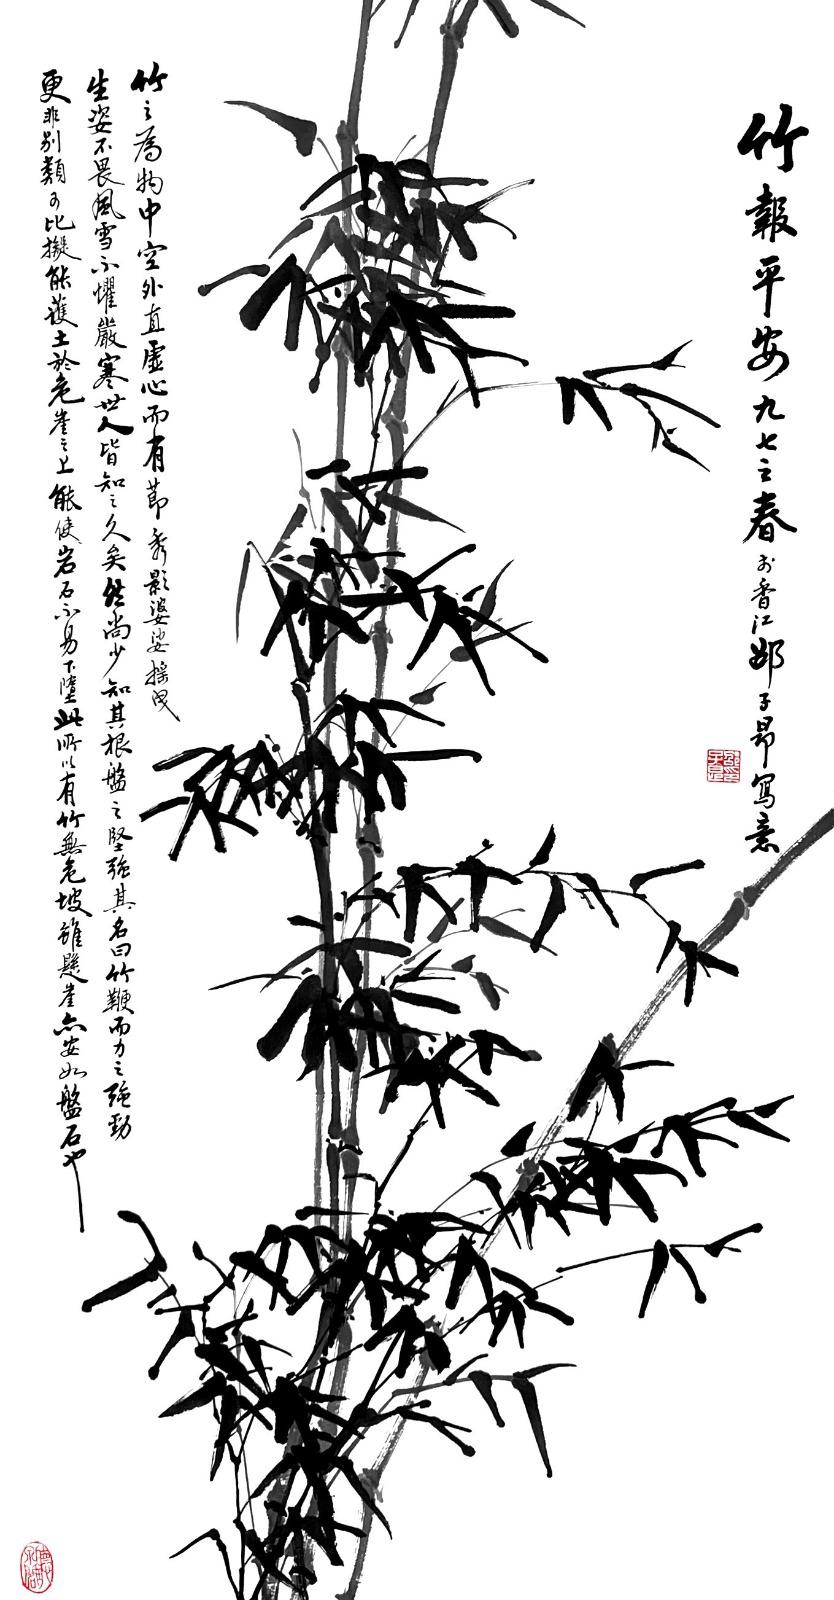 竹報平安九七之春於香江鄔子昂寫意
竹之為物中空外直虛心而有節秀影婆娑搖曳
生姿不畏風雪不懼嚴寒世人皆知之久矣然尚少知其根盤之堅強其名曰竹鞭而力之強勁
更非別類可比擬能護土於危崖之上能使岩石不易下墮此所以有竹無危坡雖懸崖亦安如盤石也